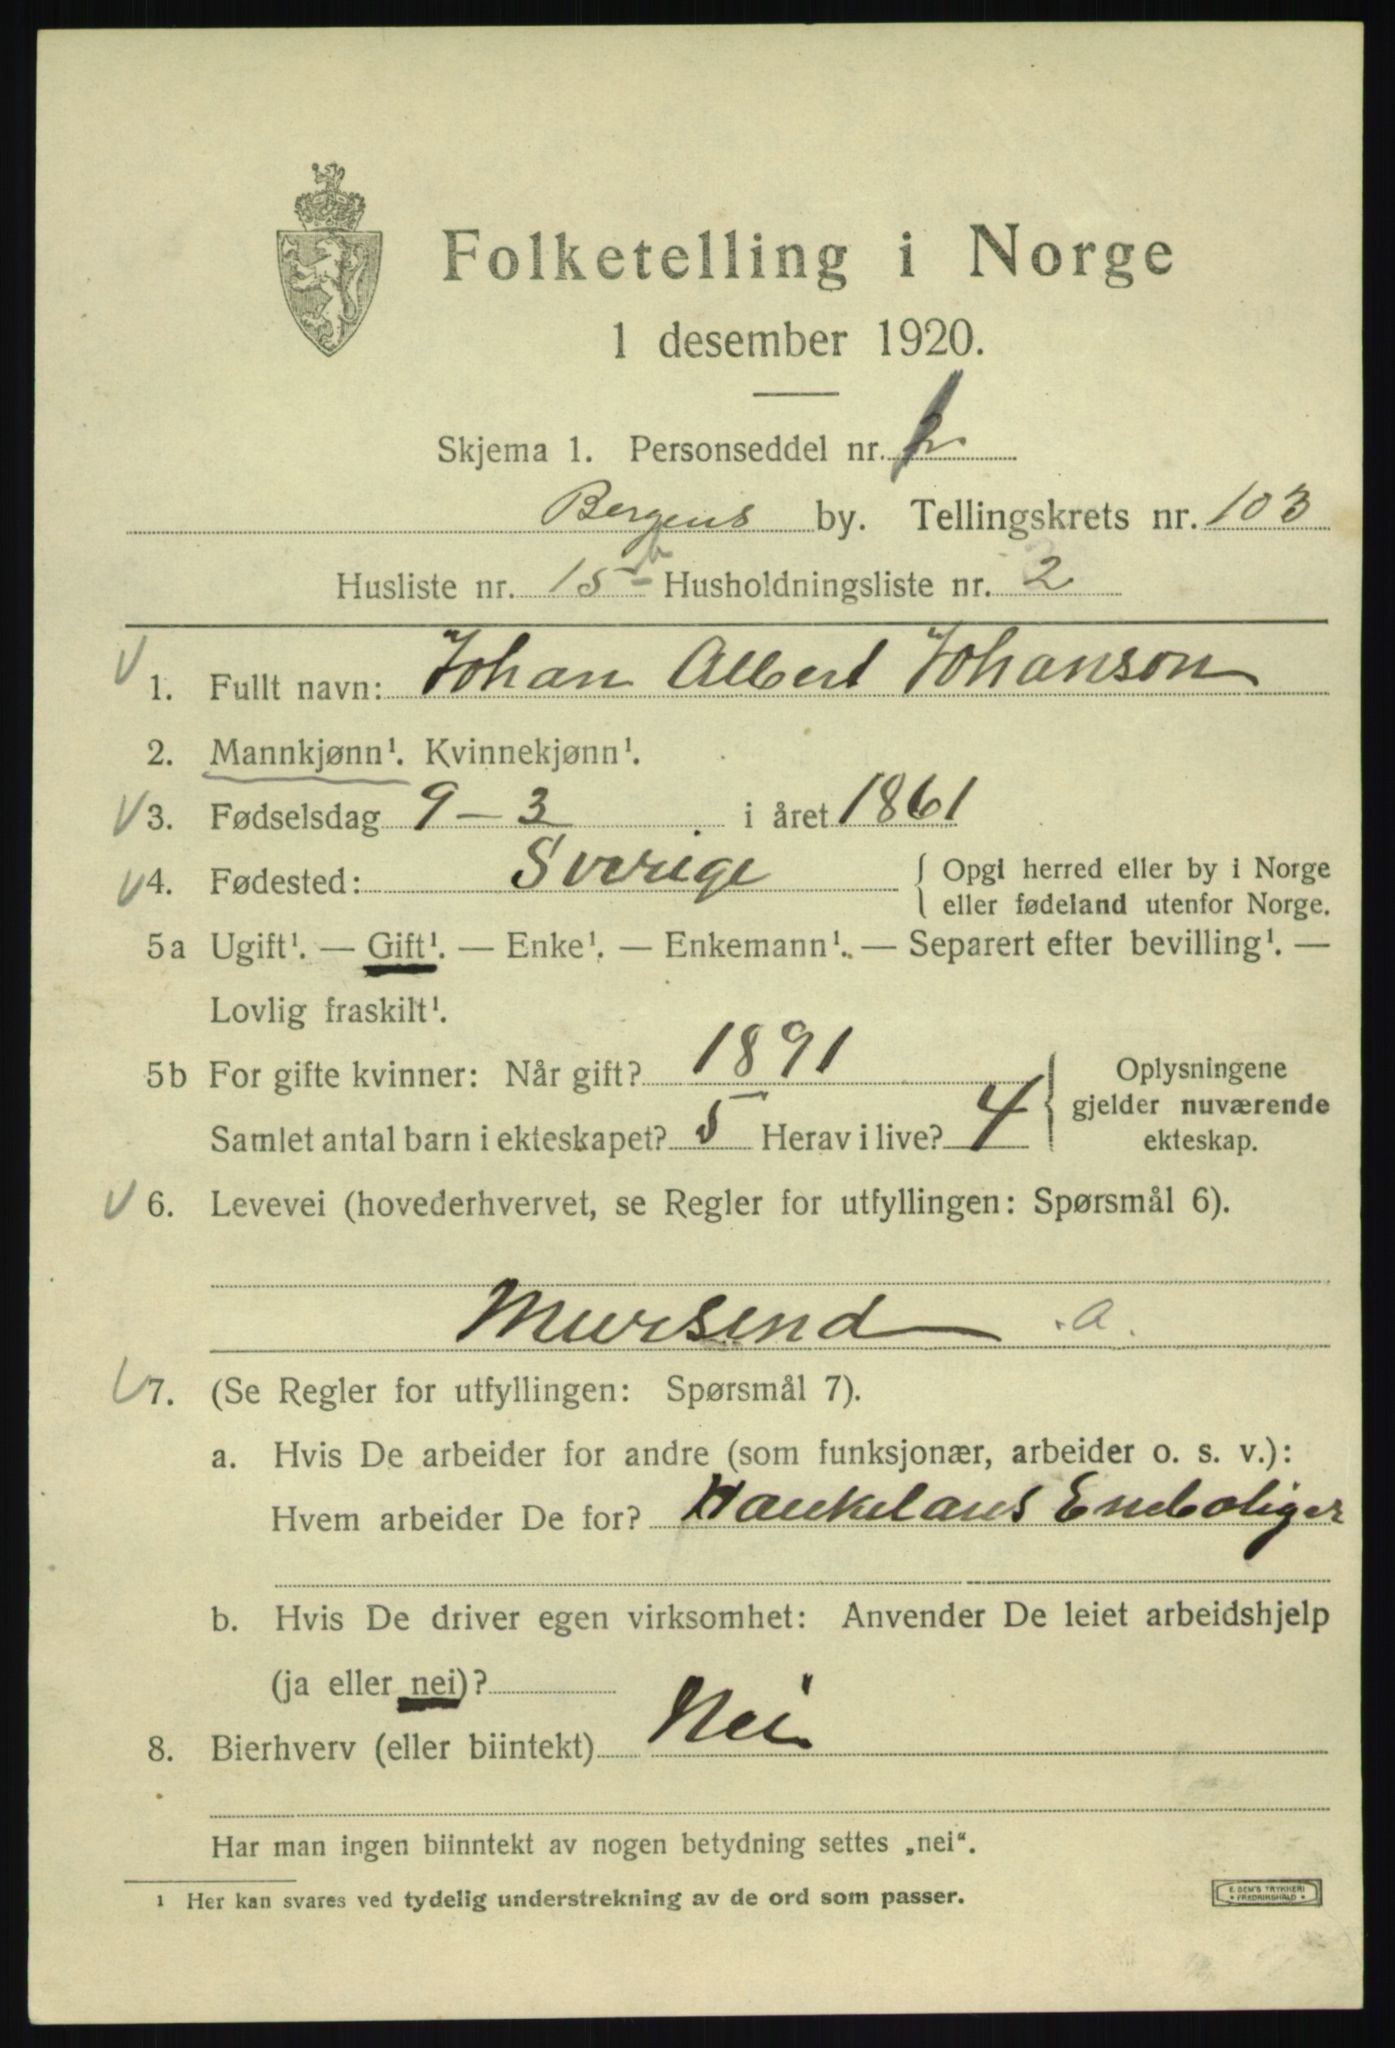 Folketelling i Norge
1 desember 1920.
Skjema 1. Personseddel nr.
Bergens by. Tellingskrets nr. 103
Husliste nr. 15 b Husholdningsliste nr. 2
1. Fullt navn: Johan Albert Johanson
2. Mannkjønn¹. Kvinnekjønn¹.
3. Fødselsdag 9 – 3 i året 1861
4. Fødested: Sverige { Opgi herred eller by i Norge
eller fødeland utenfor Norge.
5a Ugift¹. — Gift¹. — Enke¹. — Enkemann¹. — Separert efter bevilling¹. —
Lovlig fraskilt¹.
5b For gifte kvinner: Når gift? 1891
Samlet antal barn i ekteskapet? 5 Herav i live? 4
Oplysningene
gjelder nuværende
ekteskap.
6. Levevei (hovederhvervet, se Regler for utfyllingen: Spørsmål 6).
Mursend a.
7. (Se Regler for utfyllingen: Spørsmål 7).
a. Hvis De arbeider for andre (som funksjonær, arbeider o. s. v.):
Hvem arbeider De for? Haukelans Eneboliger
b. Hvis De driver egen virksomhet: Anvender De leiet arbeidshjelp
(ja eller nei)?
8. Bierhverv (eller biintekt) Nei
Har man ingen biinntekt av nogen betydning settes „nei“.
¹ Her kan svares ved tydelig understrekning av de ord som passer.
E. SEM'S TRYKKERI
FREDRIKSHALD